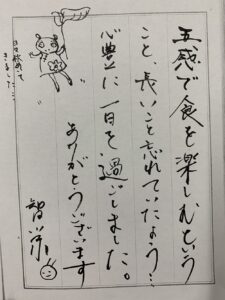 五感で食を楽しむという
こと、長いこと忘れていたよう…
心豊に一日を過ごしました。
ありがとうございます
智栄